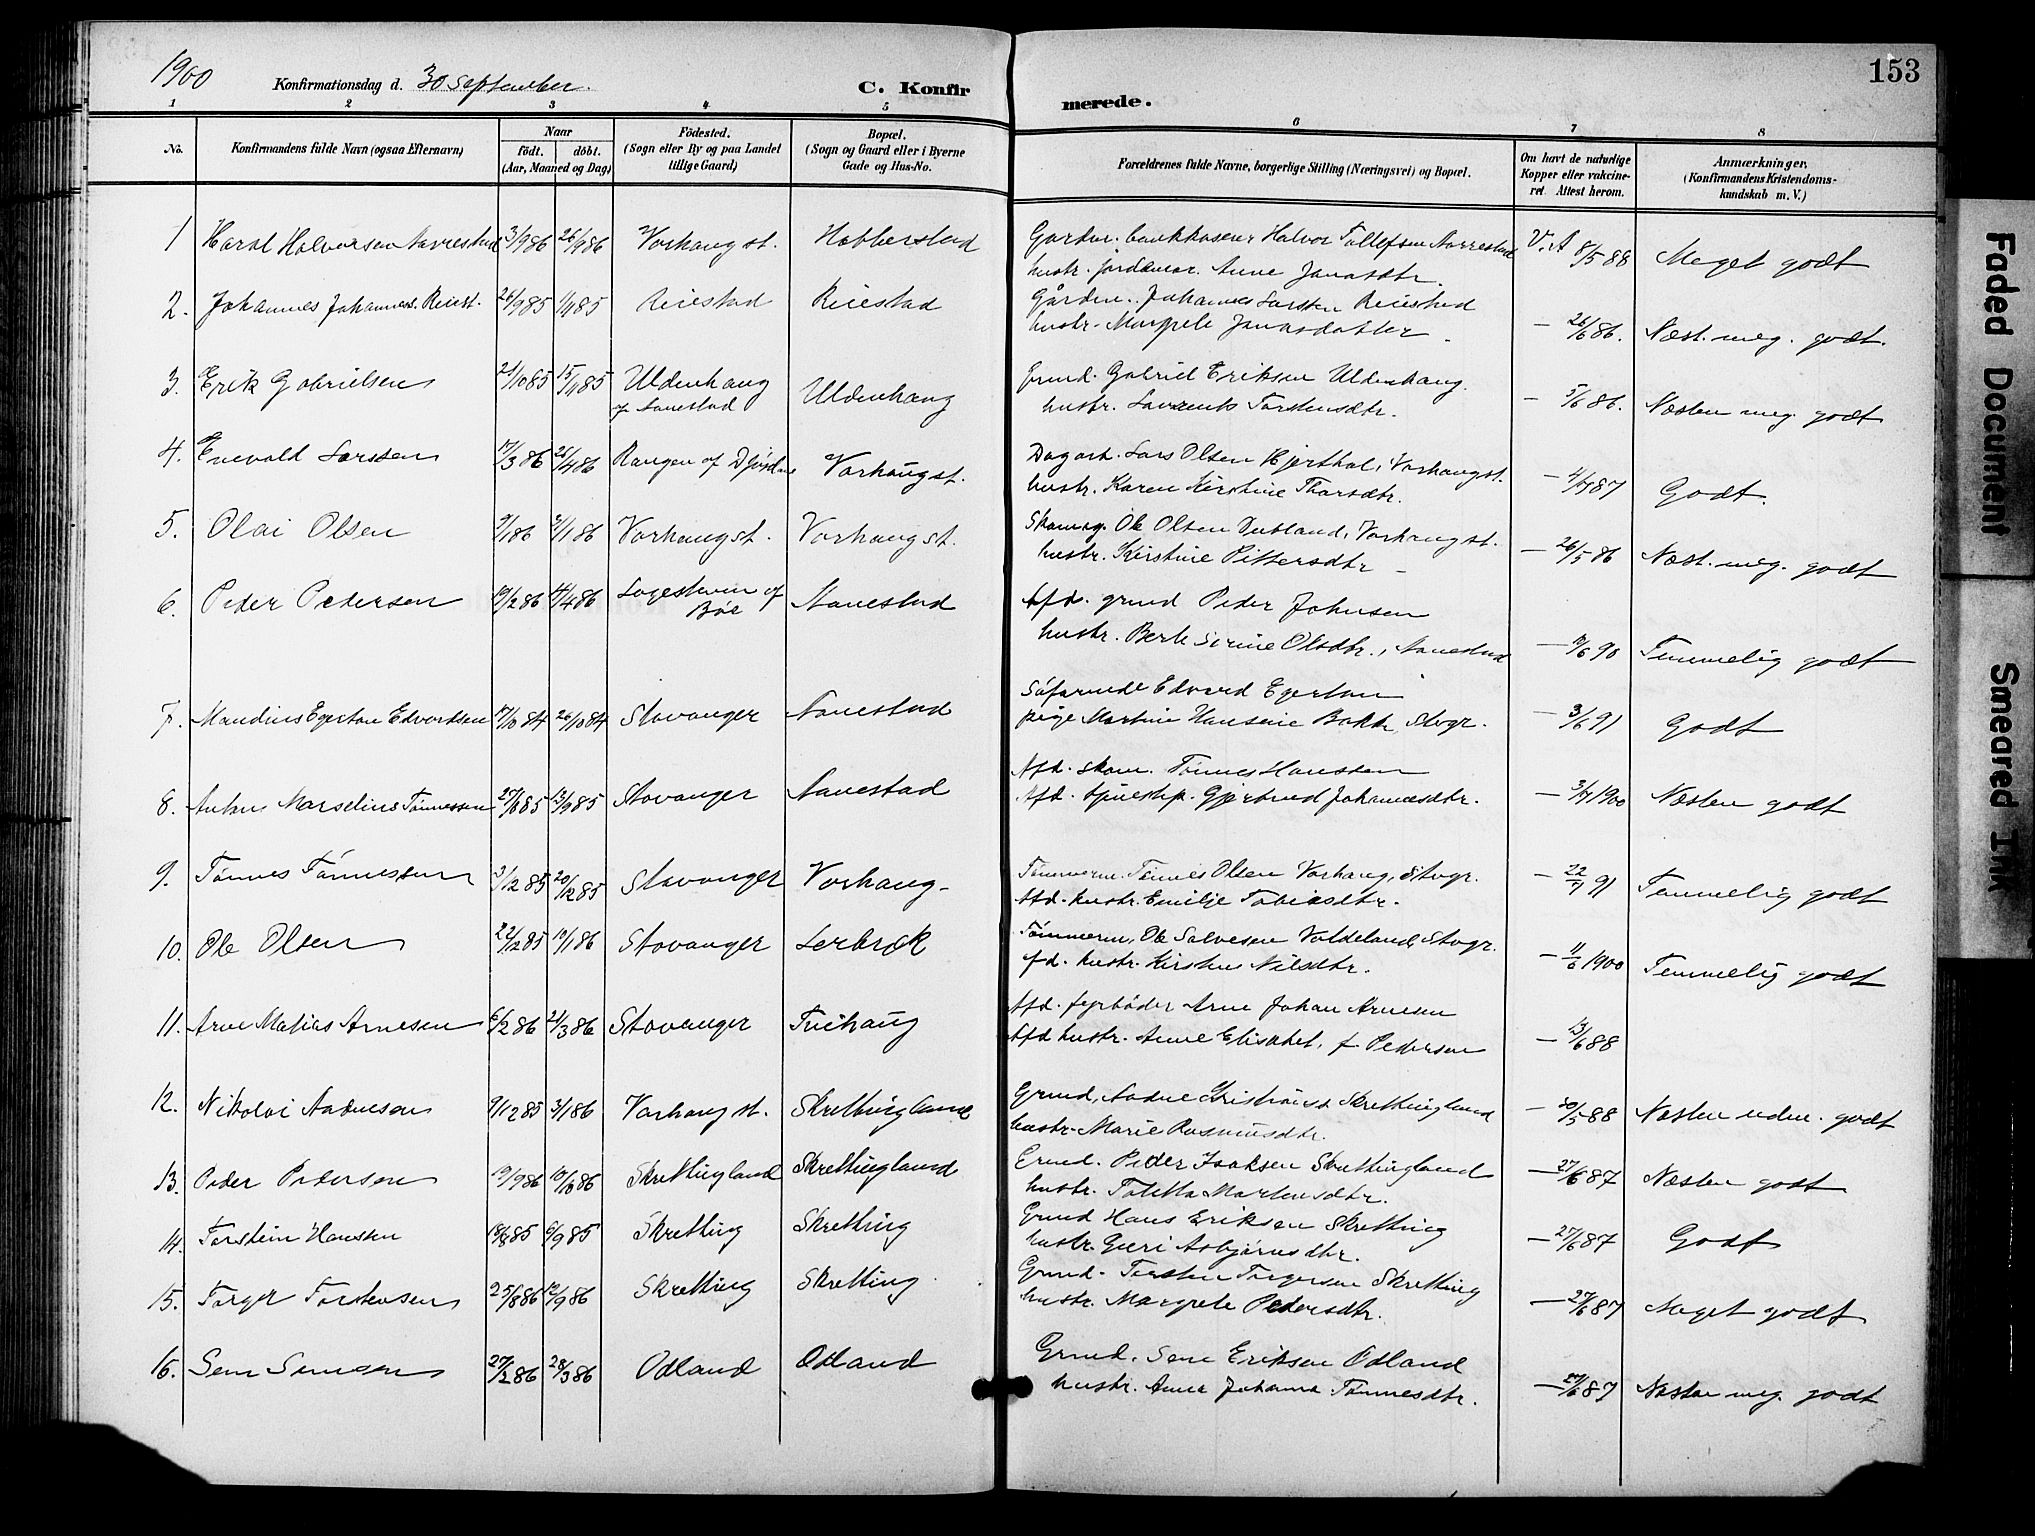 1900 Konfirmationsdag d. 30 September. C. Konfirmerede. 153
1 2 3 4 5 6 7 8
No. Konfirmandens fulde Navn (ogsaa Efternavn) Naar födt. döbt. (Aar, Maaned og Dag) Födested. (Sogn eller By og paa Landet tillige Gaard) Bopæl. (Sogn og Gaard eller i Byerne Gade og Hus-No.) Forældrenes fulde Navne, borgerlige Stilling (Næringsvei) og Bopæl. Om havt de naturlige Kopper eller vakcineret Attest herom. Anmærkninger. (Konfirmandens Kristendomskundskab m. V.)
1 Haral Halvorsen Aarrestad 3/9 86 26/9 86 Varhaugst. Hobberstad Gardm. bankkaserer Halvor Tollefsen Aarrestad V. A 8/5 88 Meget godt
hustr. jordemor. Anne Jonasdtr.
2. Johannes Johanness. Reiest. 26/9 85 1/11 85 Reiestad Reiestad Gårdm. Johannes Larsen Reiestad
hustr. Margrete Jonasdatter — 26/6 86. Næst. meg. godt.
3. Erik Gabrielsen 21/10 85 15/11 85 Uldenhaug af Aanestad Uldenhaug Grmd. Gabriel Eriksen Uldenhaug.
hustr. Torstensdtr. — 5/6 86. Næsten meg. godt
4. Enevold Larsen 17/3 86 26/4 86 Rangen af Varhaugst. Dagarb. Lars Olsen Hjerthal, Varhaugst.
hustr. Karen Kirstine Thorsdtr. — 4/7 87 Godt.
5. Olai Olsen 9/1 86 Varhaugst. Varhaugst. Skomag. Ole Olsen Varhaugst.
hustr. Kirstine Pittersdtr — 26/5 86 Næst. meg. godt
6. Peder Pedersen 19/2 86 11/4 86 af Bøe Aanestad Afd. grmd Peder Johnsen
hustr. Berte Serine Olsdtr., Aanestad — 6 90 Temmelig godt
7. Mandius Egertson Edvardsen 17/10 84 26/10 84 Stavanger Aanestad Søfarende Edvard Egertson
pige Martine Hansine Bakke, Stvgr. — 3/6 91 Godt
8. Anton Marselius Tønnessen 27/6 85 13/9 85 Stavanger Aanestad Afd. skom. Tønnes Hansen
Afd. Gjertrud Johannesdtr. — 3/7 1900 Næsten godt
9. Tønnes Tønnessen 3/12 85 20/12 85 Stavanger Varhaug - Tømmerm. Tønnes Olsen Varhaug, Stvgr.
Afd. hustr. Emilje Tobiasdtr. — 22/7 91 Temmelig godt
10. Ole Olsen 22/12 85 10/1 86 Stavanger Lerbræk Tømmerm. Ole Salvesen Voldeland Stvgr.
fd. hustr. Kirsten Nilsdtr. — 11/6 1900 Temmelig godt
11. Arne Matias Arnesen 6/2 86 21/3 86 Stavanger Tuihaug Afd. fyrbøder Arne Johan Arnesen
Afd hustr. Anne Elisabet, f. Pedersen — 13/6 88
12. Nikolai Aadnesen 9/12 85 3/1 86 Varhaugst. Skrettingland Grmd. Aadne Skrettingland
hustr. Marie Rasmusdtr. — 30/5 88 Næsten uden. godt
13. Peder Pedersen 19/9 86 10/10 86 Skrettingland Skrettingland Grmd. Peder Isaksen Skrettingland
hustr. Toletta Martensdtr. — 27/6 87 Næsten godt
14. Torstein Hansen 18/8 85 6/9 85 Skretting Skretting Grmd Hans Eriksen Skretting
hustr. Guri Asbjørnsdtr. — 27/6 87 Godt
15. Torger Torstensen 25/8 86 12/9 86 Skretting Skretting. Grmd. Torsten Torgersen Skretting
hustr. Margrete Pedersdtr. — 27/6 87 Meget godt
16. Sem Semsen 27/2 86 28/3 86 Odland Odland Grmd. Sem Eriksen Odland
hustr. Anna Johanna Tønnesdtr. — 27/6 87 Næsten meg. godt
Faded Document
Smeared Ink